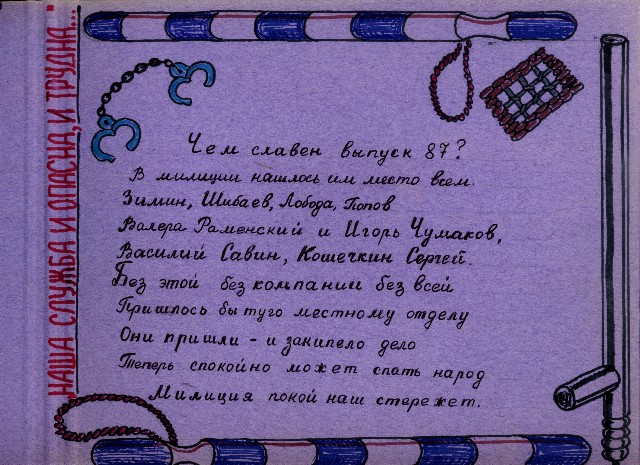 "НАША СЛУЖБА И ОПАСНА, И ТРУДНА..."
Чем славен выпуск 87?
В милиции нашлось им место всем.
Зимин, Шибаев, Лобода, Попов
Валера Раменский и Игорь Чумаков,
Василий Савин, Кошечкин Сергей.
Без этой без компании без всей
Пришлось бы туго местному отделу
Они пришли - и закипело дело
Теперь спокойно может спать народ
Милиция покой наш стережет.